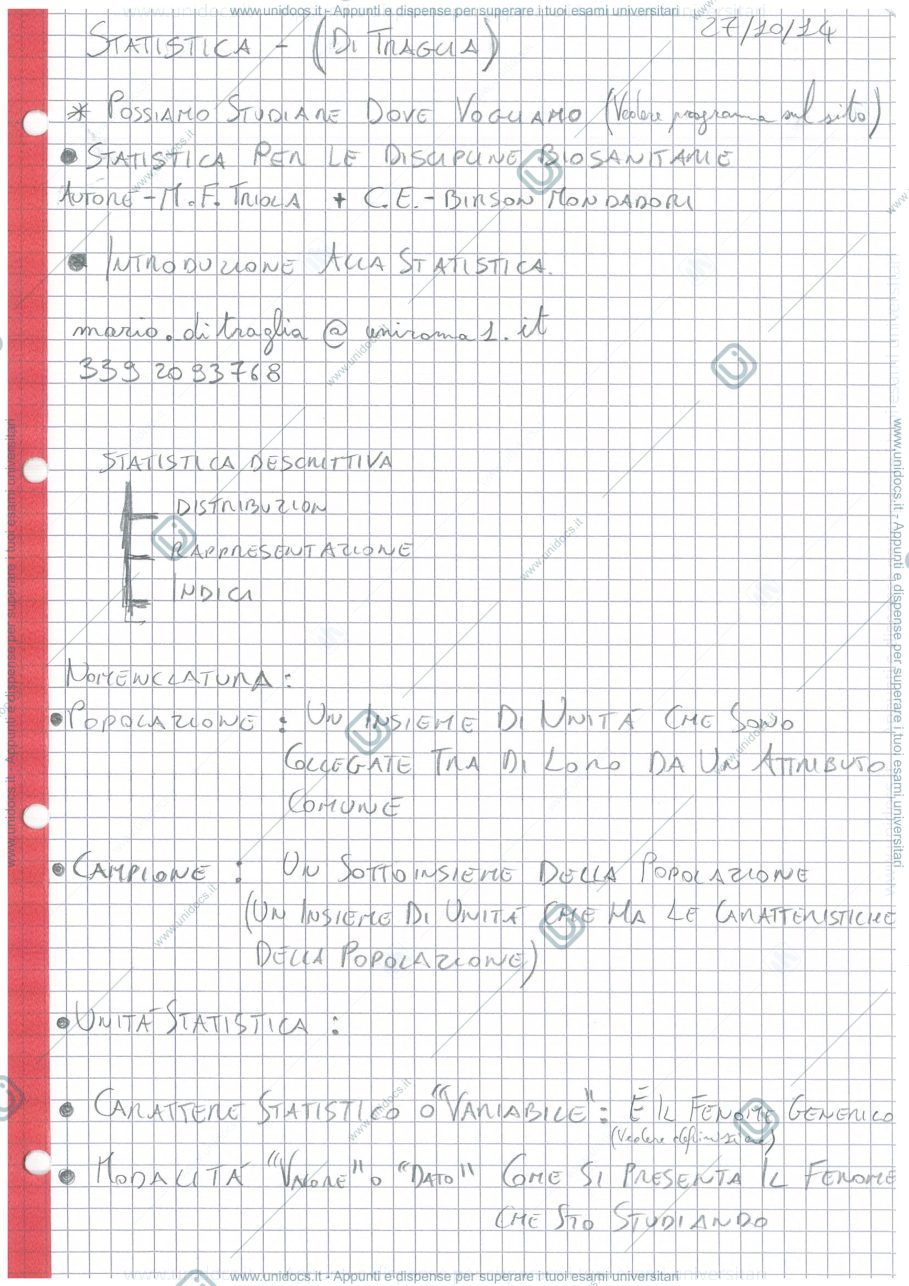 www.unidocs.it - Appunti e dispense per superare i tuoi esami universitari
STATISTICA - (DI TRAGLIA) 27/10/14
* POSSIAMO STUDIARE DOVE VOGLIAMO (Vedere programma sul sito)
• STATISTICA PER LE DISCIPLINE BIOSANITARIE
AUTORE - M.F. TRIOLA + C.E. - BIRSON MONDADORI
• INTRODUZIONE ALLA STATISTICA.
mario.ditraglia @ uniroma1.it
339 2093768
STATISTICA DESCRITTIVA
DISTRIBUZION
RAPPRESENTAZIONE
INDICI
NOMENCLATURA:
• POPOLAZIONE : UN INSIEME DI UNITÀ CHE SONO
COLLEGATE TRA DI LORO DA UN ATTRIBUTO
COMUNE
• CAMPIONE : UN SOTTOINSIEME DELLA POPOLAZIONE
(UN INSIEME DI UNITÀ CHE HA LE CARATTERISTICHE
DELLA POPOLAZIONE)
• UNITÀ STATISTICA :
• CARATTERE STATISTICO O "VARIABILE" : È IL FENOME GENERICO
(Vedere definizione)
• MODALITÀ "VALORE" O "DATO" COME SI PRESENTA IL FENOME
CHE STO STUDIANDO
www.unidocs.it - Appunti e dispense per superare i tuoi esami universitari